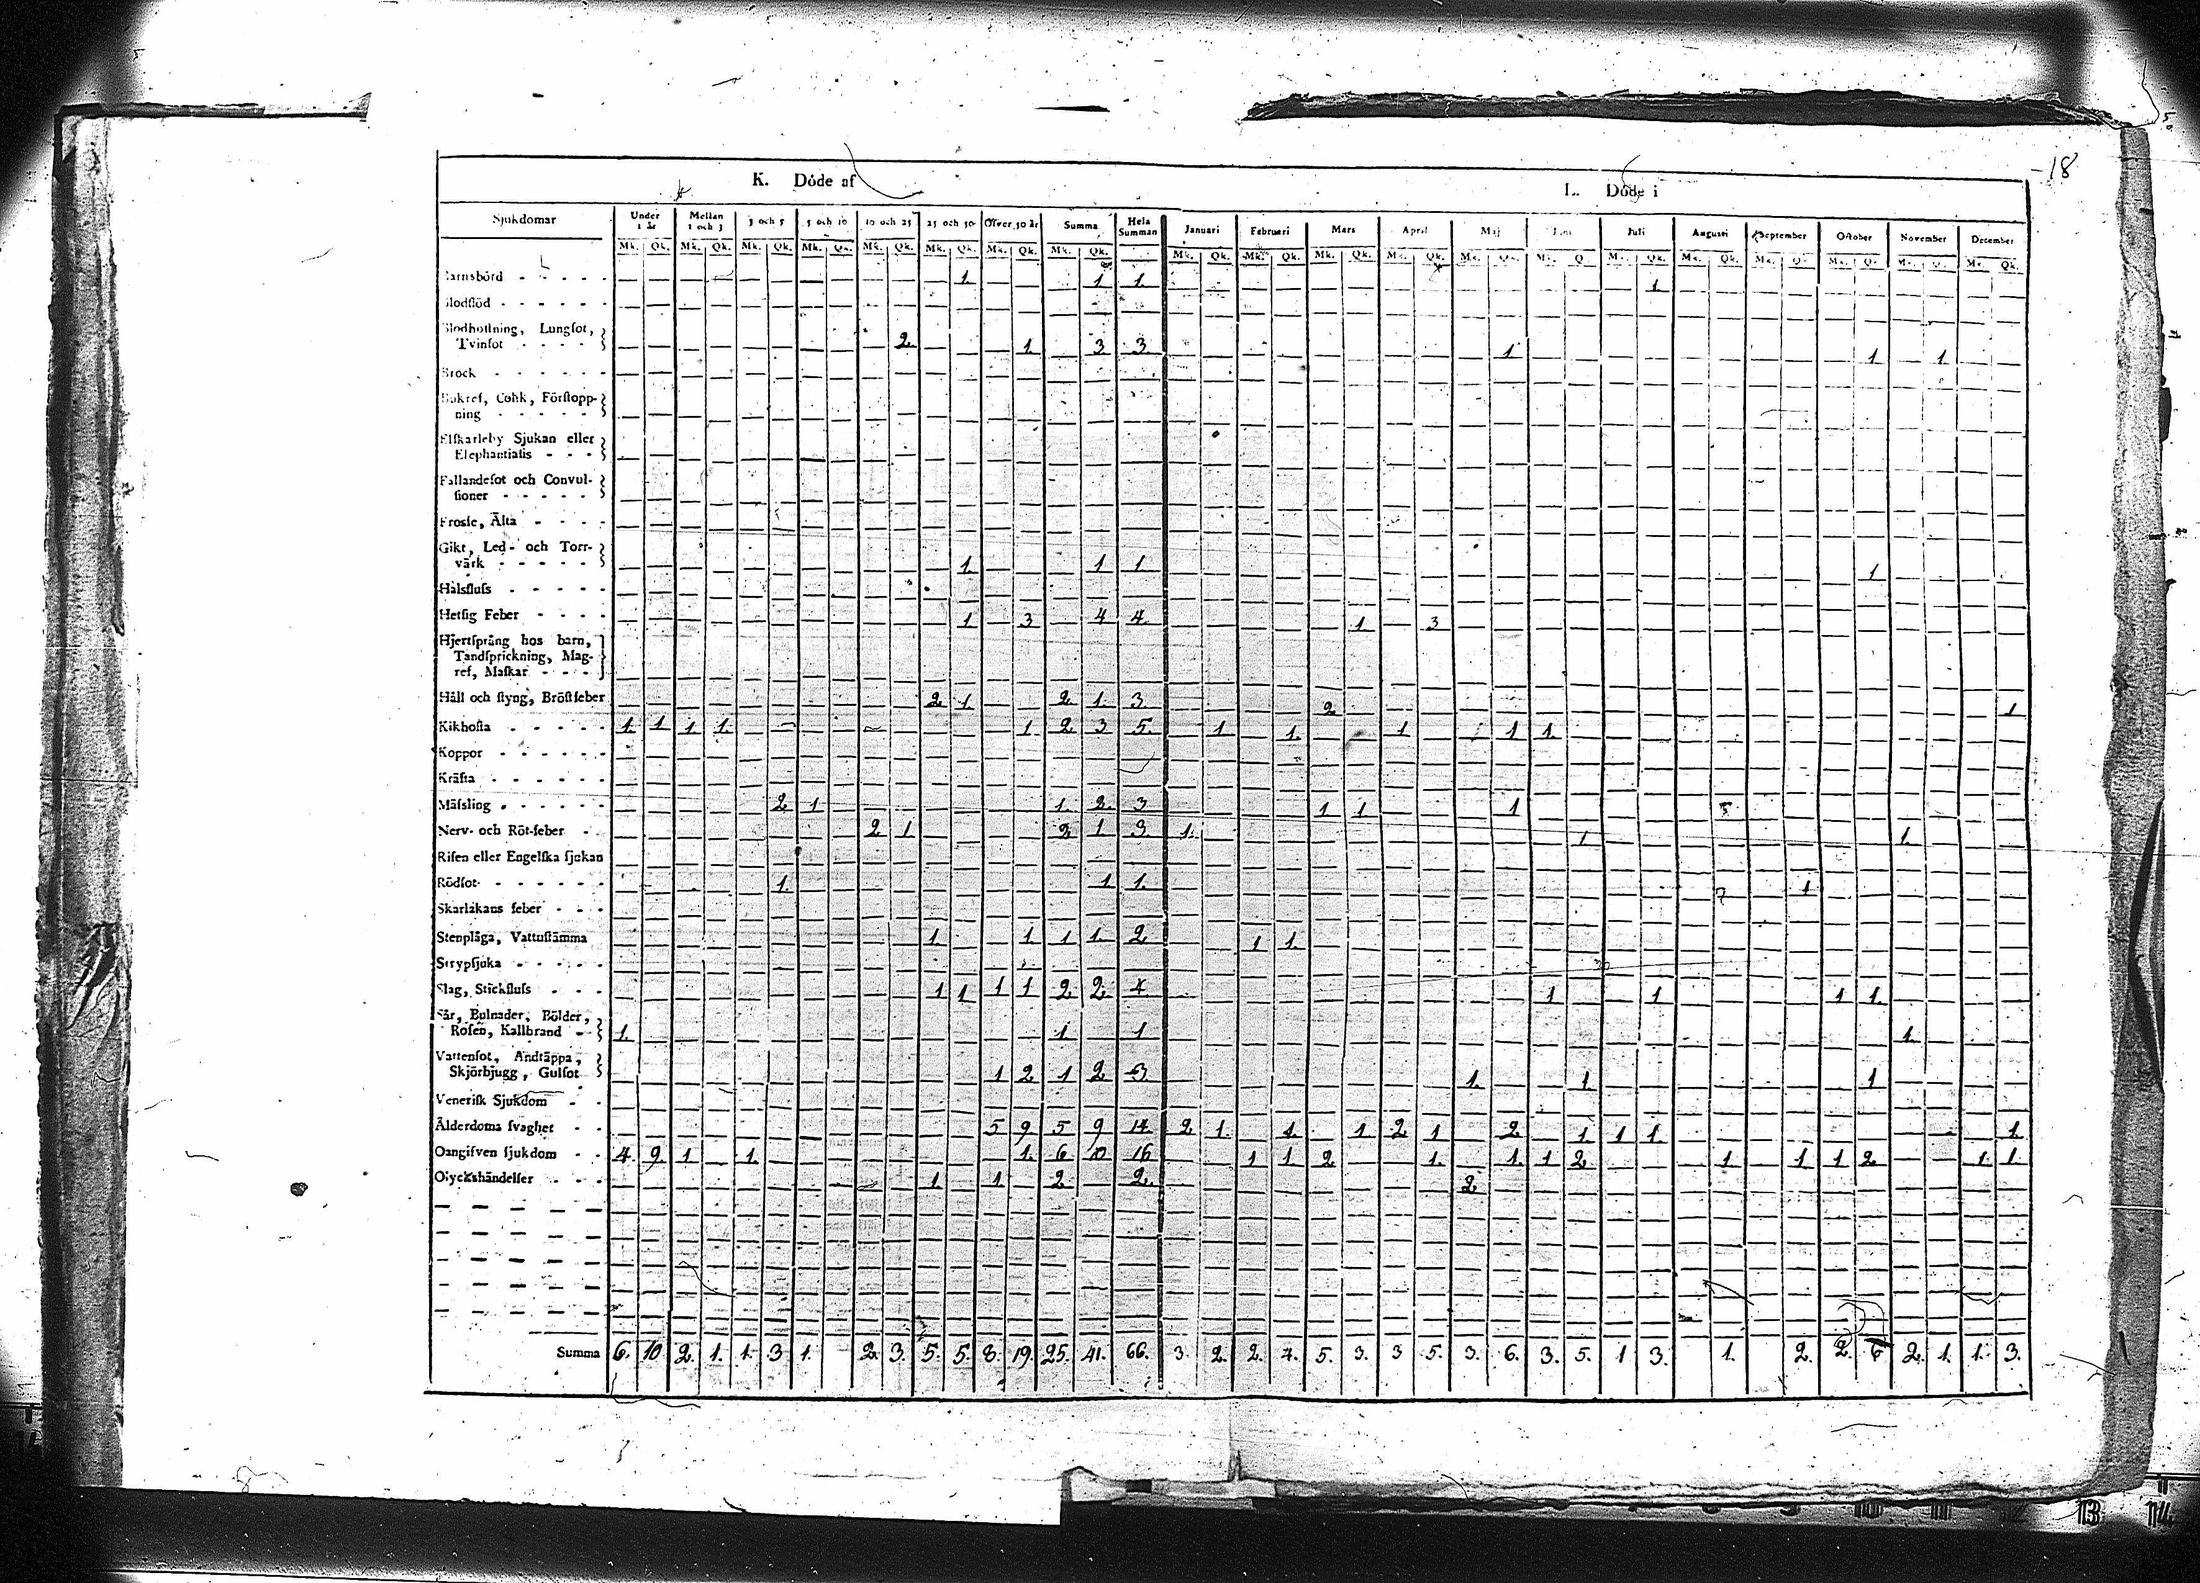 -18
K. Döde af
L. Döde i
Sjukdomar Under 1 år Mellan 1 och 3 3 och 5 5 och 10 10 och 25 25 och 50 Öfver 50 år Summa Hela Summan Januari Februari Mars April Maj Juni Juli Augusti September October November December
Mk. Qk. Mk. Qk. Mk. Qk. Mk. Qk. Mk. Qk. Mk. Qk. Mk. Qk. Mk. Qk. Mk. Qk. Mk. Qk. Mk. Qk. Mk. Qk. Mk. Qk. Mk. Q. M. Qk. Mk. Qk. Mk. Q. Mk. Qk. Mk. Q. Mk. Qk.
Barnsbörd - - - - - 1 1 1 1
Blodflöd - - - - - -
Blodhostning, Lungsot,
Tvinsot - - - - 2 1 3 3 1 1 1
Brock - - - - - -
Bukref, Colik, Förstopp-
ning - - - - -
Elfkarleby Sjukan eller
Elephantiasis - - -
Fallandesot och Convul-
sioner - - - - -
Frossa, Älta - - - -
Gikt, Led- och Torr-
värk - - - - - 1 1 1 1
Halsfluss - - - - -
Hetsig Feber - - - - 1 3 4 4 1 3
Hjertsprång hos barn,
Tandsprickning, Mag-
ref, Maskar - - -
Håll och styng, Bröstfeber 2 1 2 1 3 2 1
Kikhosta - - - - - 1 1 1 1 1 2 3 5 1 1 1 1 1
Koppor - - - - - -
Kräfta - - - - - -
Mässling - - - - - 2 1 1 2 3 1 1 1
Nerv- och Röt-feber - - 2 1 2 1 3 1 1 1
Risen eller Engelska sjukan
Rödsot - - - - - - 1 1 1 1
Skarlakans feber - - -
Stenplåga, Vattustämma 1 1 1 1 2 1 1
Strypsjuka - - - - -
Slag, Stickfluss - - - 1 1 1 1 2 2 4 1 1 1 1
Sår, Bulnader, Bölder,
Rosen, Kallbrand - 1 1 1 1
Vattensot, Andtäppa,
Skjörbjugg, Gulsot 1 2 1 2 3 1 1 1
Venerisk Sjukdom - -
Ålderdoms svaghet - - 5 9 5 9 14 2 1 1 1 2 1 2 1 1 1 1
Oangifven sjukdom - - 4 9 1 1 1 6 10 16 1 1 2 1 1 1 2 1 1 1 2 1 1
Olyckshändelser - - - 1 1 2 2 2
Summa 6. 10 2. 1. 1. 3 1. 2 3. 5. 5. 8. 19. 25. 41. 66. 3. 2. 2. 4. 5. 3. 3 5. 3. 6. 3. 5. 1 3. 1. 2. 2. 6 2. 1. 1. 3.
13 14